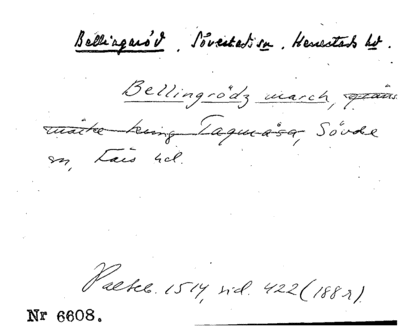 Bellingaröd. Sövestads sn. Herrestads hd.
Bellingrödz march, gräns
märke kring Tagmåsa, Sövde
sn, Färs hd.
Palteb. 1514, sid. 422 (188 r).
Nr 6608.